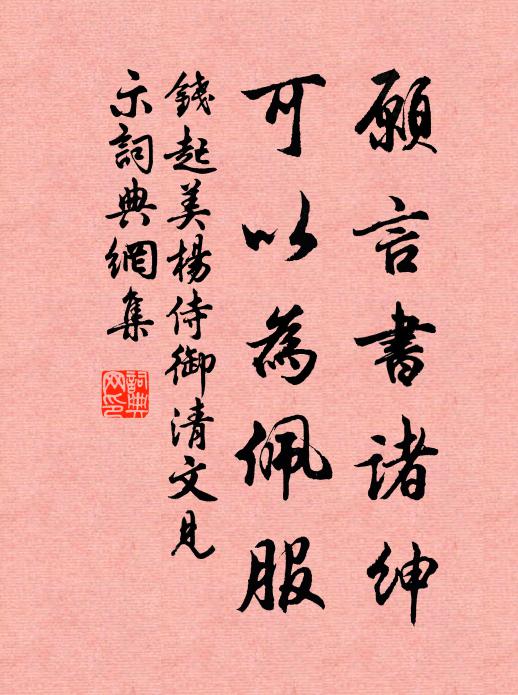 願言書諸紳
可以為佩服
錢起美楊侍御清文見
示詞典網集
詞典網印